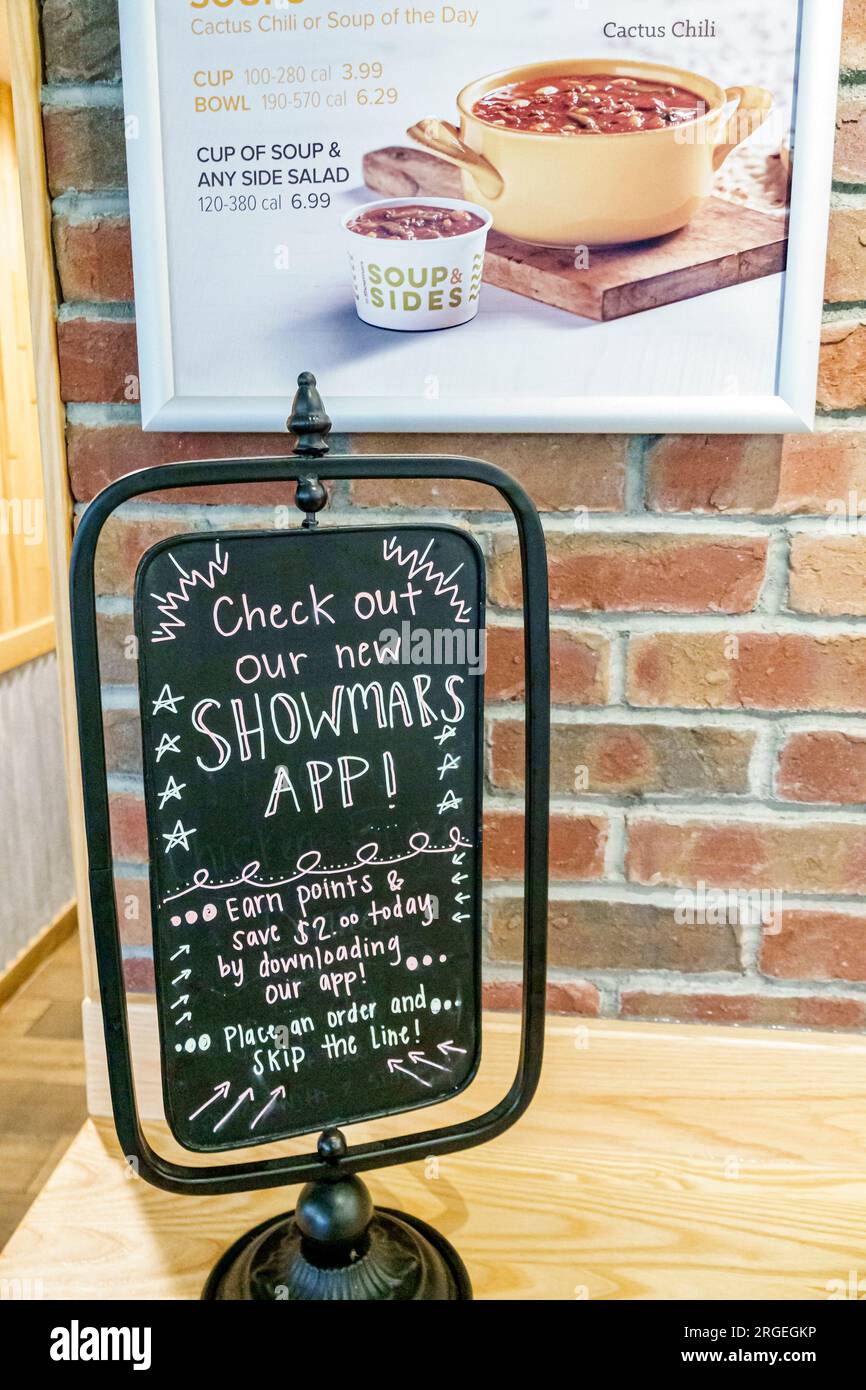 Cactus Chili or Soup of the Day
CUP 100-280 cal 3.99
BOWL 190-570 cal 6.29
CUP OF SOUP &
ANY SIDE SALAD
120-380 cal 6.99
Cactus Chili
SOUP&
SIDES
Check out
our new
SHOWMARS
APP!
Earn points &
save $2.00 today
by downloading
our app!
Place an order and
SKIP the Line!
alamy
alamy
Image ID: 2RGEGKP
www.alamy.com